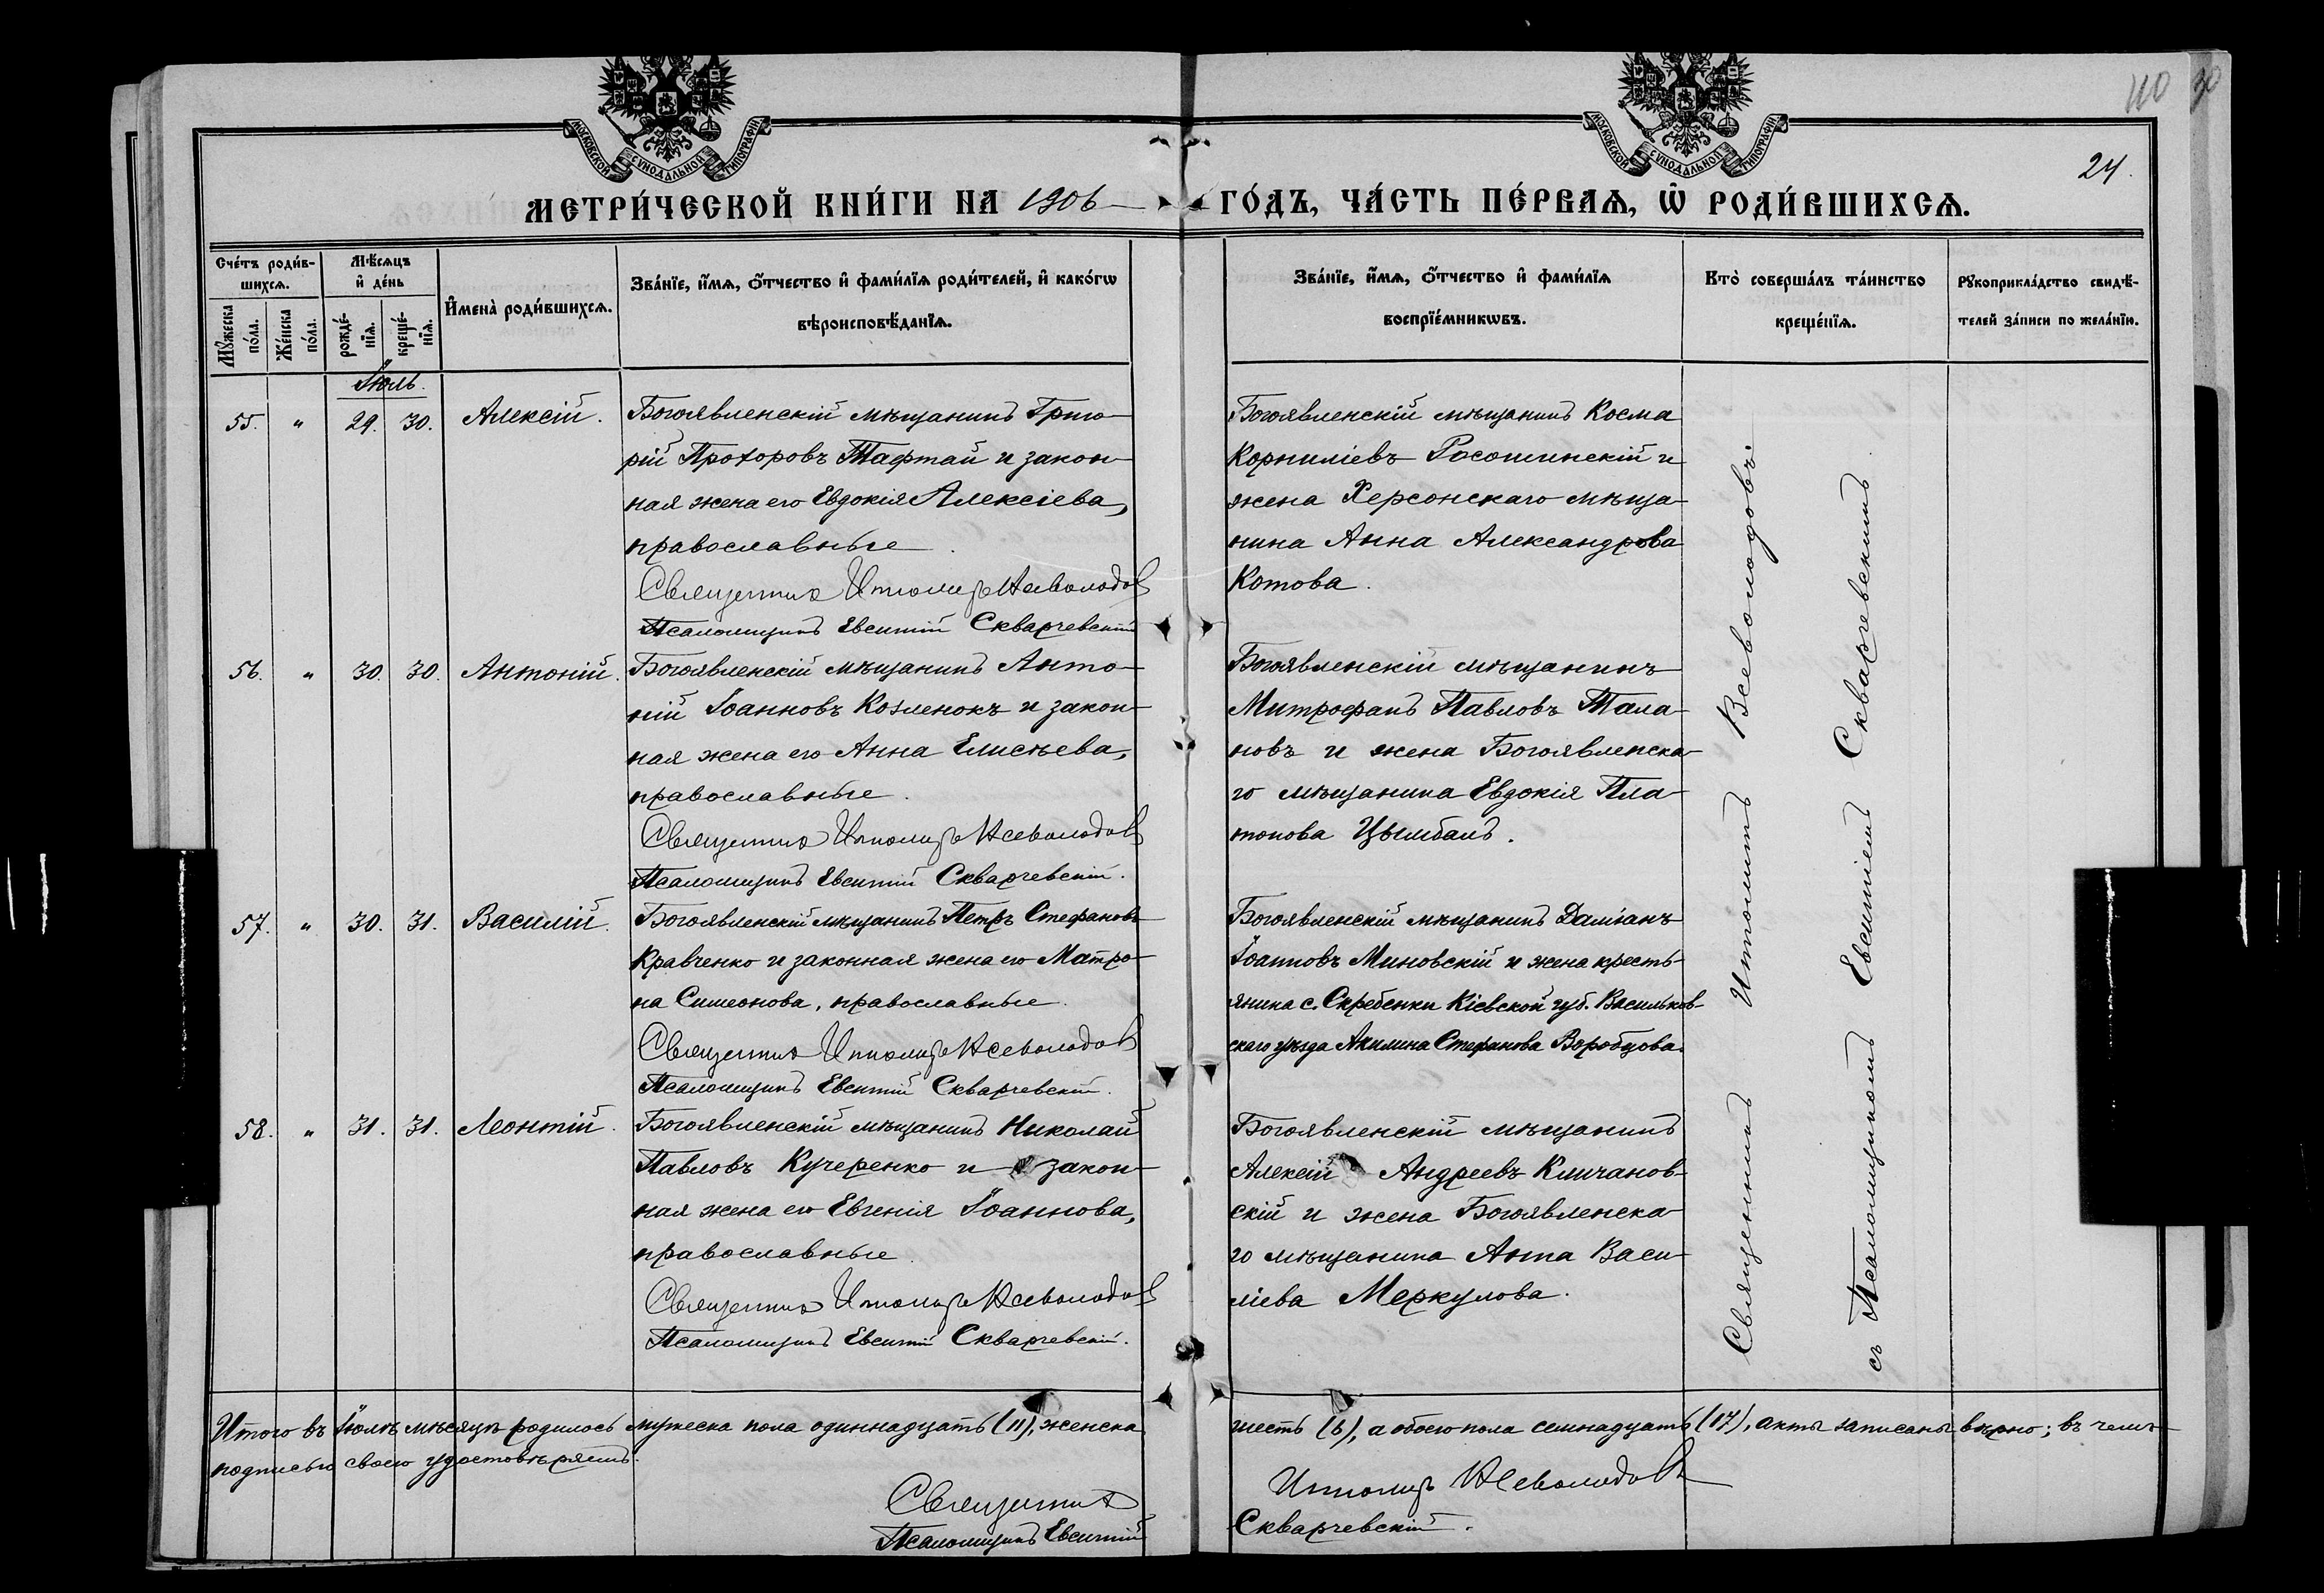 110 30
24.
МОСКОВСКОЙ СѴНОДАЛЬНОЙ ТИПОГРАФІИ
МОСКОВСКОЙ СѴНОДАЛЬНОЙ ТИПОГРАФІИ
МЕТРИ́ЧЕСКОЙ КНИ́ГИ НА 1906 ГО́ДЪ, ЧА́СТЬ ПЕ́РВАѦ, Ѡ҆ РОДИ́ВШИХСѦ.
Сче́тъ роди́в-
шихсѧ.
Мꙋ́жеска
по́ла.
Же́нска
по́ла.
Мѣ́сѧцъ
и҆ де́нь
рожде́-
нїѧ.
креще́-
нїѧ.
И҆мена̀ роди́вшихсѧ.
Зва́нїе, и҆́мѧ, ѻ҆́тчество и҆ фами́лїѧ роди́телей, и҆ како́гѡ
вѣроисповѣ́данїѧ.
Зва́нїе, и҆́мѧ, ѻ҆́тчество и҆ фами́лїѧ
воспрїе́мникѡвъ.
Кто̀ соверша́лъ та́инство
креще́нїѧ.
Рꙋкоприкла́дство свидѣ́-
телей за́писи по жела́нїю.
Іюль.
55. " 29. 30. Алексій.
Богоявленскій мѣщанинъ Григо-
рій Прохоровъ Тафтай и закон-
ная жена его Евдокія Алексіева,
православные.
Священникъ Ипполитъ Всеволодовъ
Псаломщикъ Евсигній Скварчевскій
Богоявленскій мѣщанинъ Косма
Корниліевъ Росошинскій и
жена Херсонскаго мѣща-
нина Анна Александрова
Котова.
56. " 30. 30. Антоній.
Богоявленскій мѣщанинъ Анто-
ній Іоанновъ Козленокъ и закон-
ная жена его Анна Елисѣева,
православные.
Священникъ Ипполитъ Всеволодовъ
Псаломщикъ Евсигній Скварчевскій.
Богоявленскій мѣщанинъ
Митрофанъ Павловъ Тала-
новъ и жена Богоявленска-
го мѣщанина Евдокія Пла-
тонова Цымбалъ.
57. " 30. 31. Василій.
Богоявленскій мѣщанинъ Петръ Стефановъ
Кравченко и законная жена его Матро-
на Симеонова, православные.
Священникъ Ипполитъ Всеволодовъ
Псаломщикъ Евсигній Скварчевскій.
Богоявленскій мѣщанинъ Даміанъ
Іоанновъ Миновскій и жена кресть-
янина с. Скребенки Кіевской губ. Васильков-
скаго уѣзда Акилина Стефанова Воробцова.
58. " 31. 31. Леонтій.
Богоявленскій мѣщанинъ Николай
Павловъ Кучеренко и закон-
ная жена его Евгенія Іоаннова,
православные.
Священникъ Ипполитъ Всеволодовъ
Псаломщикъ Евсигній Скварчевскій.
Богоявленскій мѣщанинъ
Алексій Андреевъ Кличанов-
скій и жена Богоявленска-
го мѣщанина Анна Васи-
ліева Меркулова.
Священникъ Ипполитъ Всеволодовъ.
съ Псаломщикомъ Евсигніемъ Скварчевскимъ.
Итого въ Іюлѣ мѣсяцѣ родилось мужеска пола одиннадцать (11), женска шесть (6), а обоего пола семнадцать (17), акты записаны вѣрно; въ чемъ
подписью своею удостовѣряемъ.
Священникъ Ипполитъ Всеволодовъ
Псаломщикъ Евсигній Скварчевскій.